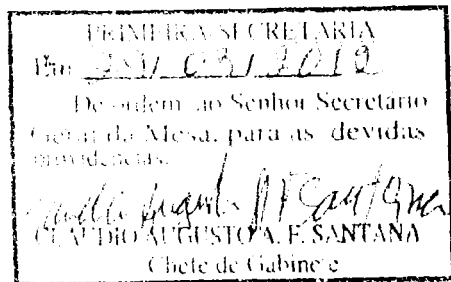 PRIMEIRA SECRETARIA
Em / 03 / 2012
De ordem ao Senhor Secretário
Geral da Mesa, para as devidas
providências.
CLAUDIO AUGUSTO A. F. SANTANA
Chefe de Gabinete